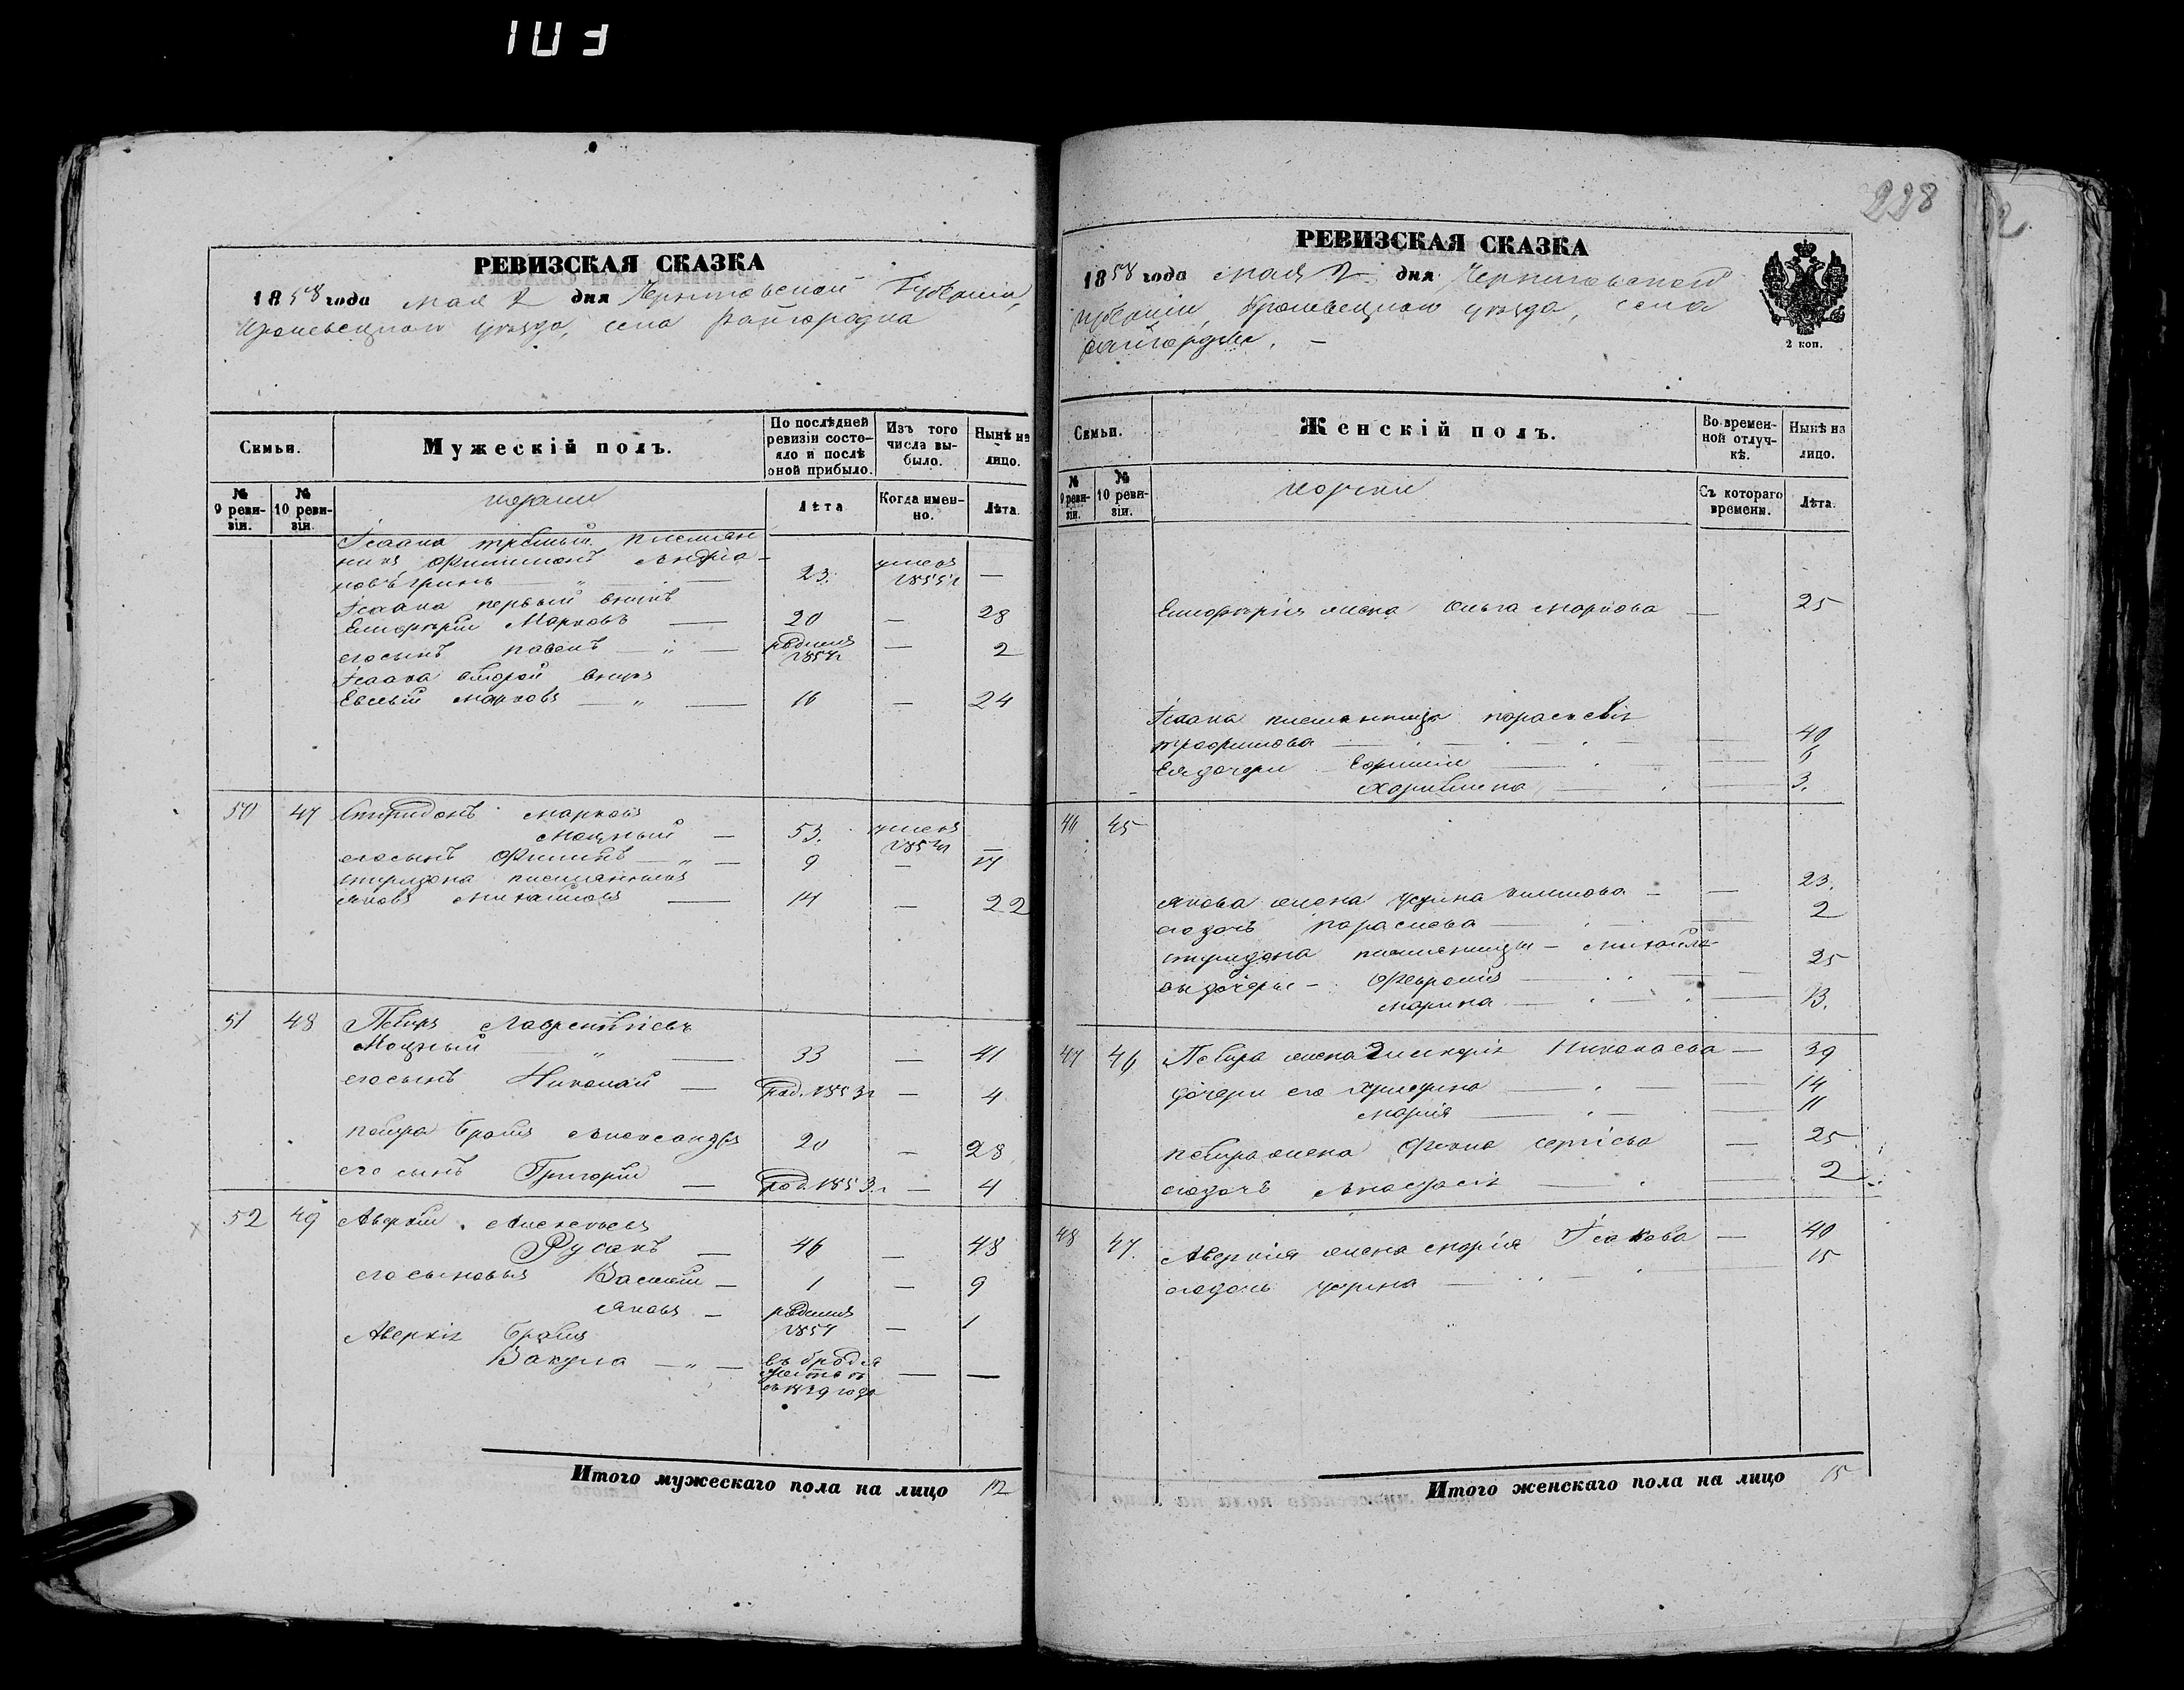 103
РЕВИЗСКАЯ СКАЗКА
1858 года мая 2 дня Черниговской Губерніи,
Кролевецкаго уѣзда, села Райгородка
Семьи.
Мужескій полъ.
По послѣдней ревизіи состояло и послѣ оной прибыло.
Изъ того числа выбыло.
Нынѣ на лицо.
№ 9 ревизіи.
№ 10 ревизіи.
Лѣта
Когда именно.
Лѣта.
Ісаака третьий племян
никъ Филимонъ
23. 1855 —
Ісаака первый внукъ
Елиферій Марковъ — 20 — 28
его сынъ Павелъ — „ — — 2
Ісаака второй внукъ
Евсѣй Марковъ — „ — 16 — 24
50 47 Спиридонъ Марковъ
Моцный — 53. —
его сынъ Филипъ — „ — 9 — 17
Спиридона племянникъ
Яковъ Михайловъ — 14 — 22
51 48 Петръ Лаврентіевъ
Моцный „ — 33 — 41
его сынъ Николай — род. 1853 г — 4
Петра братъ Александръ 20 — 28
его сынъ Григорій — род. 1853 г — 4
52 49 Аверкій Алексѣевъ
Русакъ — 46 — 48
его сыновья Василій — 1 — 9
Яковъ — 1857 — 1
Аверкія братъ
Вакула — „ — въ бродя
съ 1839 года — —
Итого мужескаго пола на лицо 12
228
РЕВИЗСКАЯ СКАЗКА
1858 года мая 2 дня Черниговской
губерніи, Кролевецкаго уѣзда, села
Райгородка. —
2 коп.
Семьи.
Женскій полъ.
Во временной отлучкѣ.
Нынѣ на лицо.
№ 9 ревизіи.
№ 10 ревизіи.
Съ котораго времени.
Лѣта.
Елиферія жена Ольга Маркова — 25
Ісаака племянница Параскевія
Трофимова — 40
Ея дочери — 6
Харитина — 3.
46 45
Якова жена Устина — — 23.
его дочь Параскева — 2
Спиридона племянницы — Михайло-
вы дочери — Февронія — 25
Марина — 13.
47 46 Петра жена Гликерія Николаева — 39
дочери его — 14
Марія — 11
Петра жена Фекла Сергіева — 25
его дочь Анастасія — 2
48 47. Аверкія жена Марія Ісакова — 40
его дочь Устина — 15
Итого женскаго пола на лицо 15